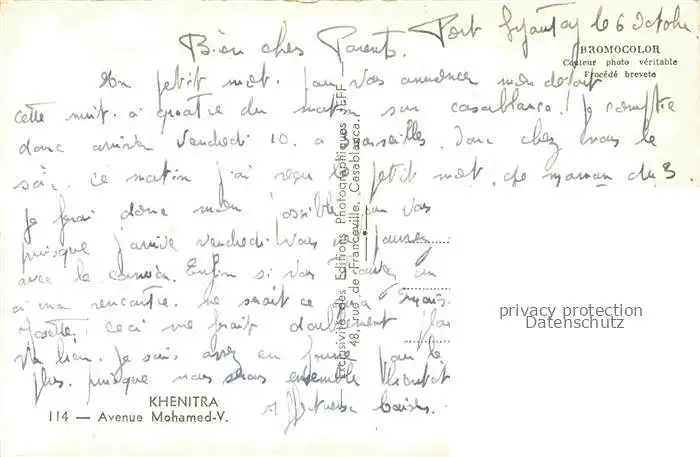 Port Lyautey le 6 Octobre
Bien chers Parents.
BROMOCOLOR
Couleur photo véritable
Procédé breveté
Un petit mot. pour vous annoncer mon départ
cette nuit. à quatre du matin sur casablanca! Je compte
donc arriver vendredi 10. a Marseilles. Donc chez vous le
soir. ce matin j'ai reçu le petit mot de maman du 3.
Je ferai donc mon possible pour vous
puisque j'arrive vendredi. Vous pourrez
avec le camion. Enfin si vous pouvez
à ma rencontre. ne serait ce
Josette. ceci me ferait doublement
bien. Je suis assez en forme pour le
plus. puisque nous serons ensemble bientôt
Affectueux baisers.
Exclusivité des Editions Photographiques JEFF
48, rue de Franceville, Casablanca.
privacy protection
Datenschutz
KHENITRA
114 — Avenue Mohamed-V.